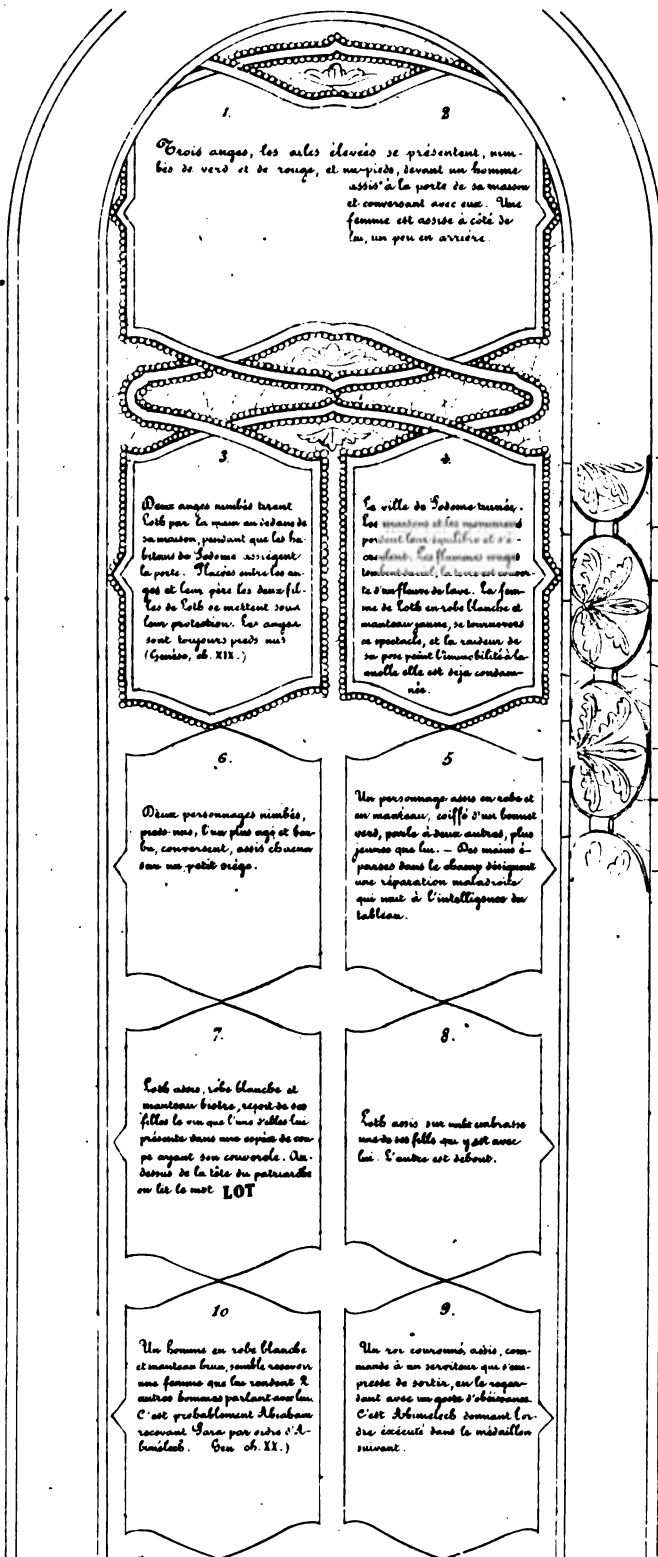 1. 2
Trois anges, les ailes élevées se présentent, nim-
bés de verd et de rouge, et nu-pieds, devant un homme
assis à la porte de sa maison
et conversant avec eux. Une
femme est assise à côté de
lui, un peu en arrière.
3.
Deux anges nimbés tirent
Loth par la main au dedans de
sa maison, pendant que les ha-
bitans de Sodome assiègent
la porte. Placées entre les an-
ges et leur père les deux fil-
les de Loth se mettent sous
leur protection. Les anges
sont toujours pieds nus
(Genèse, ch. XIX.)
4.
La ville de Sodome ruinée.
Les maisons et les monumens
perdent leur équilibre et s'é-
croulent. Les flammes rouges
tombent du ciel, la terre est couver-
te d'un fleuve de lave. La fem-
me de Loth en robe blanche et
manteau jaune, se tourne vers
ce spectacle, et la raideur de
sa pose peint l'immobilité à la
quelle elle est déja condam-
née.
6.
Deux personnages nimbés,
pieds-nus, l'un plus agé et bar-
bu, conversent, assis chacun
sur un petit siège.
5
Un personnage assis en robe et
en manteau, coiffé d'un bonnet
verd, parle à deux autres, plus
jeunes que lui. — Des mains é-
parses dans le champ désignent
une réparation maladroite
qui nuit à l'intelligence du
tableau.
7.
Loth assis, robe blanche et
manteau bistre, reçoit de ses
filles le vin que l'une d'elles lui
présente dans une espèce de cou-
pe ayant son couvercle. Au-
dessus de la tête du patriarche
on lit le mot LOT
8.
Loth assis sur un lit embrasse
une de ses filles qui y est avec
lui. L'autre est debout.
10
Un homme en robe blanche
et manteau brun, semble recevoir
une femme que lui rendent 2
autres hommes parlant avec lui.
C'est probablement Abraham
recevant Sara par ordre d'A-
bimélech. Gen ch. XX.)
9.
Un roi couronné, assis, com-
mande à un serviteur qui s'em-
presse de sortir, en le regar-
dant avec un geste d'obéissance.
C'est Abimelech donnant l'or-
dre éxécuté dans le médaillon
suivant.